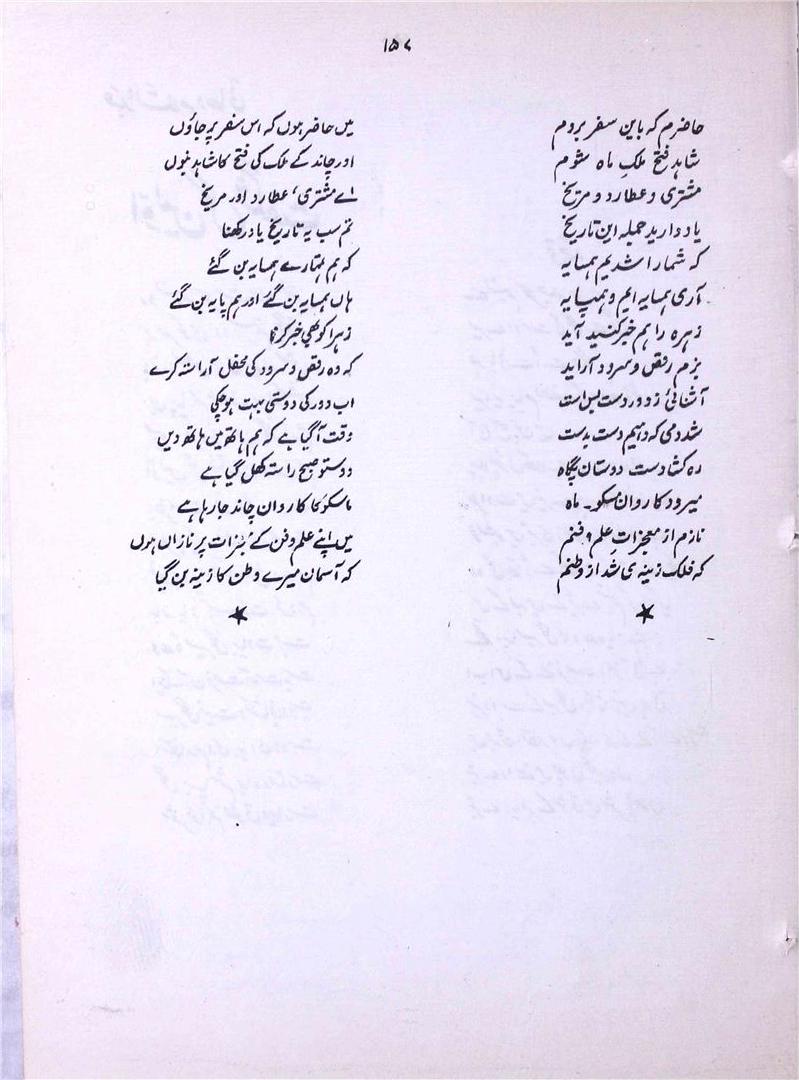 ۱۵۷
حاضرم کہ باین سفر بردم
شاہدِ فتح ملکِ ماہ شوم
مشتری و عطارد و مریخ
یاد دارید جملہ این تاریخ
کہ شما را شدیم ہمسایہ
آری ہمسایہ ایم و ہمپایہ
زہرہ را ہم خبر کنید آید
بزم رقص و سرود آراید
آشنائی ز دور دست بس است
شد دمی کہ دہیم دست بدست
رہ کشادست دوستان پگاہ
میرود کاروان مسکو۔ ماہ
نازم از معجزاتِ علم و فنم
کہ فلک زینہ ی شد از وطنم
میں حاضر ہوں کہ اس سفر پر جاؤں
اور چاند کے ملک کی فتح کا شاہد بنوں
اے مشتری، عطارد اور مریخ
تم سب یہ تاریخ یاد رکھنا
کہ ہم تمہارے ہمسایہ بن گئے
ہاں ہمسایہ بن گئے اور ہم پایہ بن گئے
زہرا کو بھی خبر کرنا
کہ وہ رقص و سرود کی محفل آراستہ کرے
اب دور کی دوستی بہت ہوچکی
وقت آگیا ہے کہ ہم ہاتھ میں ہاتھ دیں
دوستو صبح راستہ کھل گیا ہے
ماسکو کا کاروان چاند جا رہا ہے
میں اپنے علم و فن کے معجزات پر نازاں ہوں
کہ آسمان میرے وطن کا زینہ بن گیا